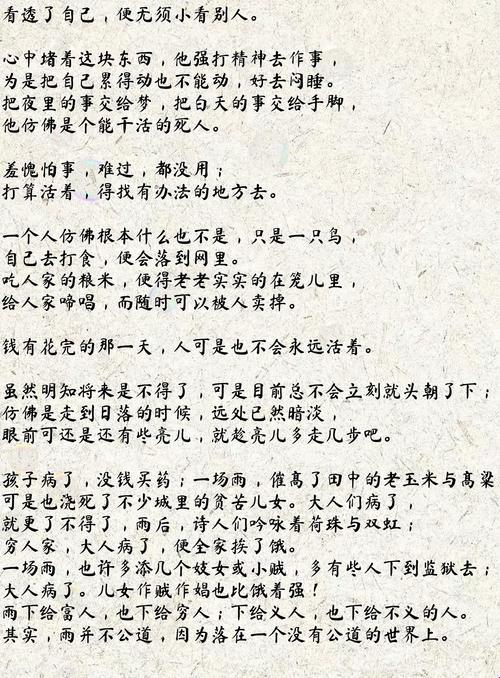 看透了自己，便无须小看别人。
心中堵着这块东西，他强打精神去作事，
为是把自己累得动也不能动，好去闷睡。
把夜里的事交给梦，把白天的事交给手脚，
他仿佛是个能干活的死人。
羞愧怕事，难过，都没用；
打算活着，得找有办法的地方去。
一个人仿佛根本什么也不是，只是一只鸟，
自己去打食，便会落到网里。
吃人家的粮米，便得老老实实的在笼儿里，
给人家啼唱，而随时可以被人卖掉。
钱有花完的那一天，人可是也不会永远活着。
虽然明知将来是不得了，可是目前总不会立刻就头朝了下；
仿佛是走到日落的时候，远处已然暗淡，
眼前可还是还有些亮儿，就趁亮儿多走几步吧。
孩子病了，没钱买药；一场雨，催高了田中的老玉米与高粱
可是也浇死了不少城里的贫苦儿女。大人们病了，
就更了不得了，雨后，诗人们吟咏着荷珠与双虹；
穷人家，大人病了，便全家挨了饿。
一场雨，也许多添几个妓女或小贼，多有些人下到监狱去；
大人病了。儿女作贼作娼也比饿着强！
雨下给富人，也下给穷人；下给义人，也下给不义的人。
其实，雨并不公道，因为落在一个没有公道的世界上。